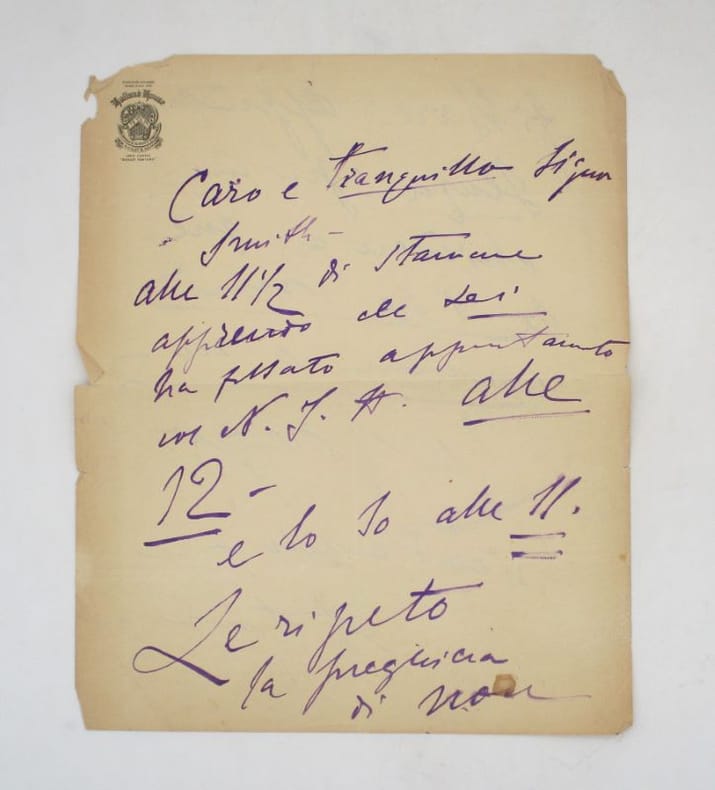 Italians House
Caro e Tranquillo Signor
Smith -
alle 11 1/2 di stamane
apprendo che Lei
ha fissato appuntamento
col N. Y. A. alle
12 -
e lo so alle 11.
Le ripeto
la preghiera
di non